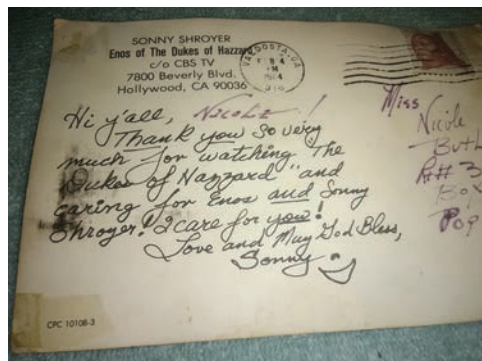 SONNY SHROYER
Enos of The Dukes of Hazzard
c/o CBS TV
7800 Beverly Blvd.
Hollywood, CA 90036
VALDOSTA, GA
Hi y'all, Nicole!
Thank you so very
much for watching "The
Dukes of Hazzard" and
caring for Enos and Sonny
Shroyer! I care for you!
Love and May God Bless,
Sonny
Miss
Nicole
Rt# 3
Box
CPC 10108-3